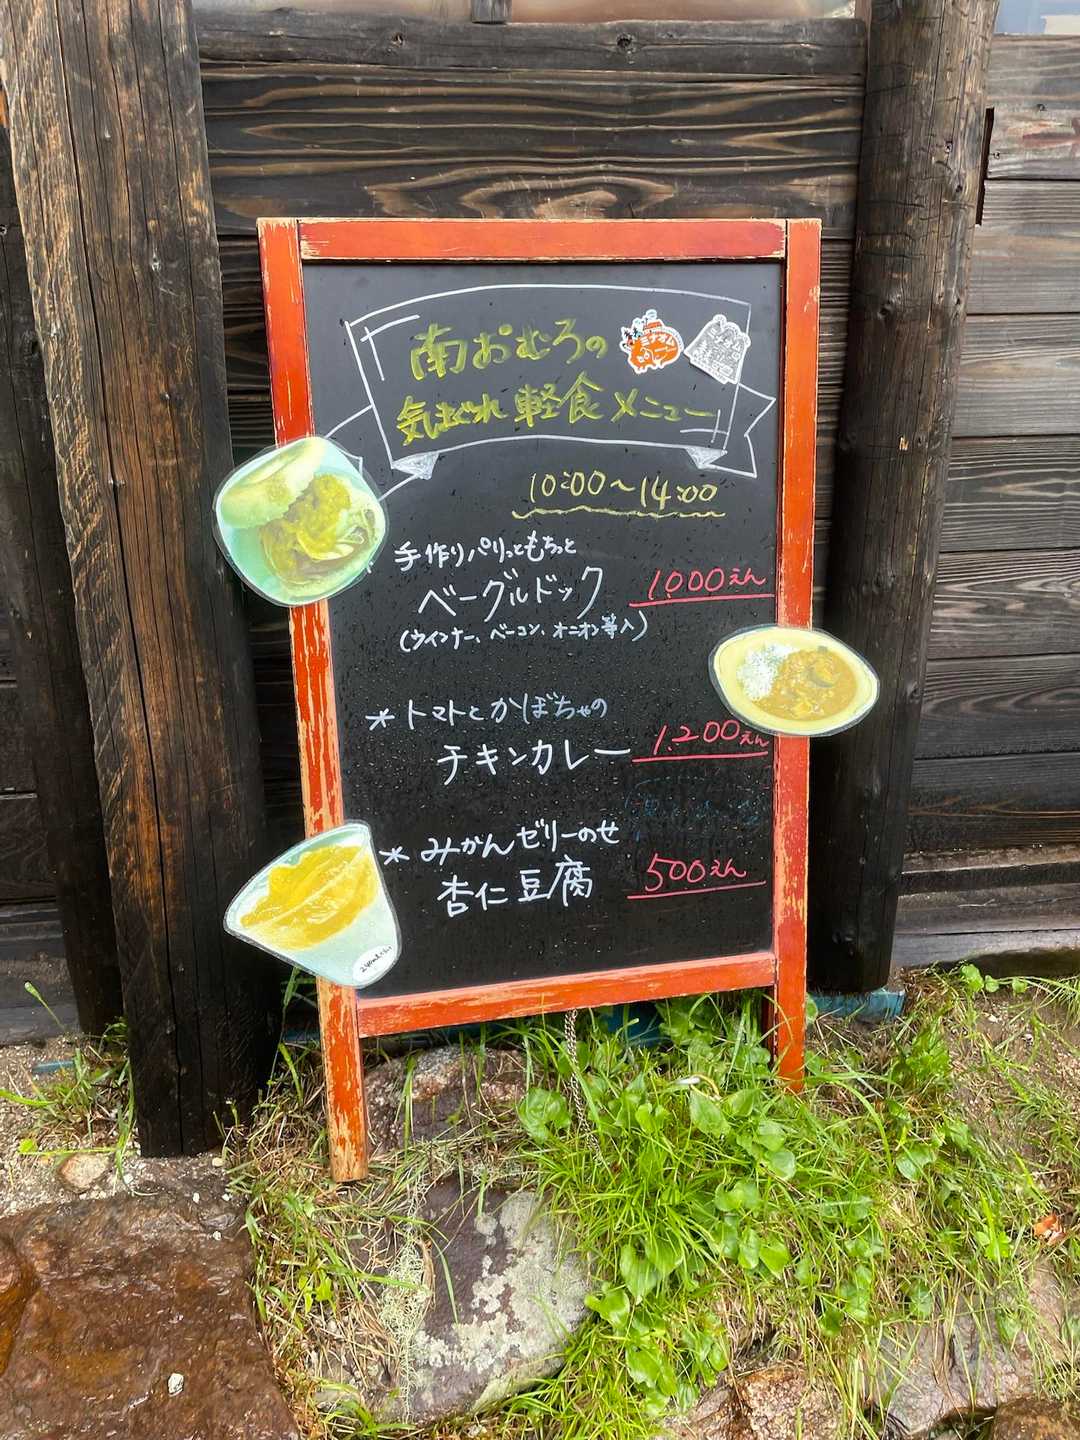 南おむろの
ミナオム
気まぐれ軽食メニュー
10:00～14:00
手作りパリっともちっと
ベーグルドック 1000えん
(ウインナー、ベーコン、オニオン等入)
＊トマトとかぼちゃの
チキンカレー 1,200えん
＊みかんゼリーのせ
杏仁豆腐 500えん